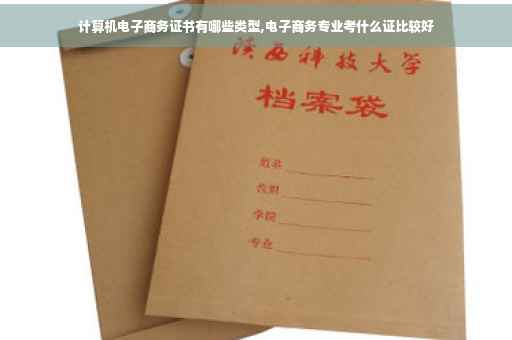 计算机电子商务证书有哪些类型,电子商务专业考什么证比较好
陕西科技大学
档案袋
姓名
性别
学院
专业